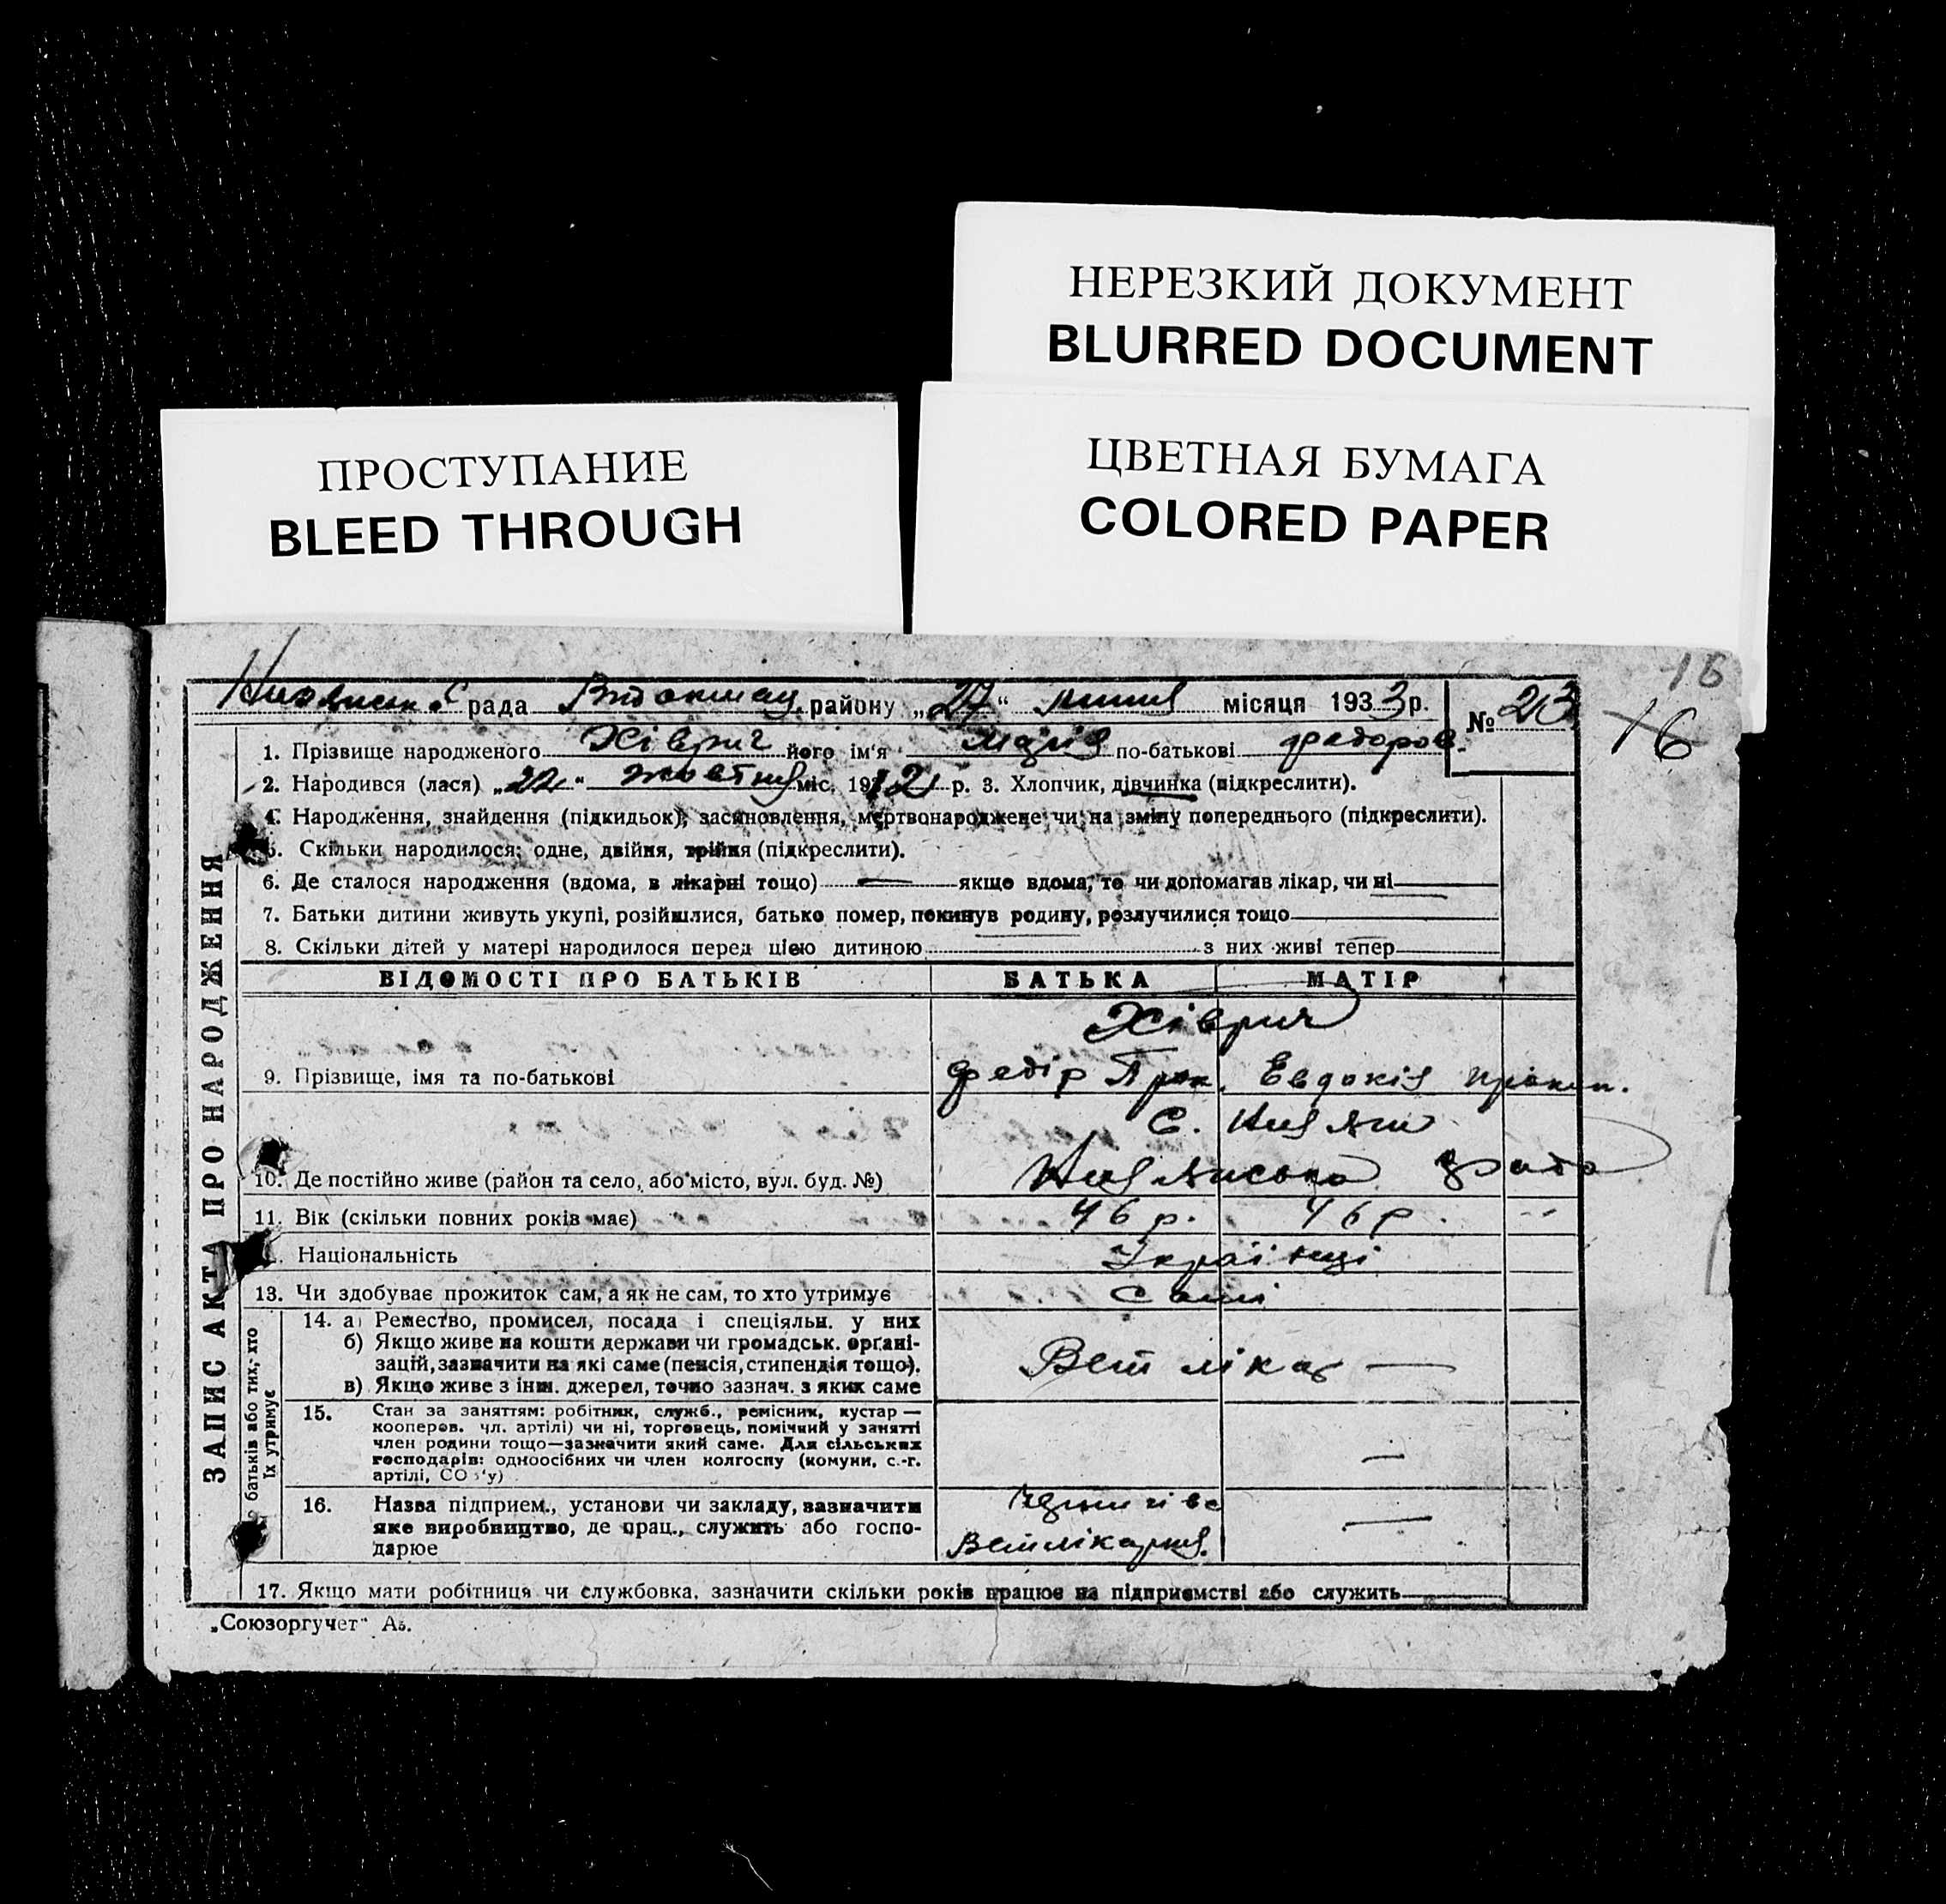 НЕРЕЗКИЙ ДОКУМЕНТ
BLURRED DOCUMENT
ЦВЕТНАЯ БУМАГА
COLORED PAPER
ПРОСТУПАНИЕ
BLEED THROUGH
16
16
рада району „27“ липня місяця 1933 р. № 23
ЗАПИС АКТА ПРО НАРОДЖЕННЯ
1. Прізвище народженого Хіврич його ім'я Марія по-батькові Федоров.
2. Народився (лася) „22“ жовтня міс. 1912 р. 3. Хлопчик, дівчинка (підкреслити).
4. Народження, знайдення (підкидьок), засиновлення, мертвонароджене чи на зміну попереднього (підкреслити).
5. Скільки народилося: одне, двійня, трійня (підкреслити).
6. Де сталося народження (вдома, в лікарні тощо) — якщо вдома, то чи допомагав лікар, чи ні
7. Батьки дитини живуть укупі, розійшлися, батько помер, покинув родину, розлучилися тощо
8. Скільки дітей у матері народилося перед цією дитиною з них живі тепер
ВІДОМОСТІ ПРО БАТЬКІВ БАТЬКА МАТІР
Хіврич
9. Прізвище, імя та по-батькові Федір Прок. Евдокія Прокоп.
с.
10. Де постійно живе (район та село, або місто, вул. буд. №)
11. Вік (скільки повних років має) 46 р. 46 р.
Національність Українці
13. Чи здобуває прожиток сам, а як не сам, то хто утримує Самі
батьків або тих, хто їх утримує
14. а) Ремество, промисел, посада і спеціяльн. у них
б) Якщо живе на кошти держави чи громадськ. органі-
зацій, зазначити на які саме (пенсія, стипендія тощо).
в) Якщо живе з інш. джерел, точно зазнач. з яких саме
Вет лікар —
15. Стан за заняттям: робітник, служб., ремісник, кустар —
кооперов. чл. артілі) чи ні, торговець, помічний у занятті
член родини тощо—зазначити який саме. Для сільських
господарів: одноосібних чи член колгоспу (комуни, с.-г.
артілі, СОЗ'у) —
16. Назва підприєм., установи чи закладу, зазначити
яке виробництво, де прац., служить або госпо-
дарює
Ветлікарня. —
17. Якщо мати робітниця чи службовка, зазначити скільки років працює на підприємстві або служить
„Союзоргучет“